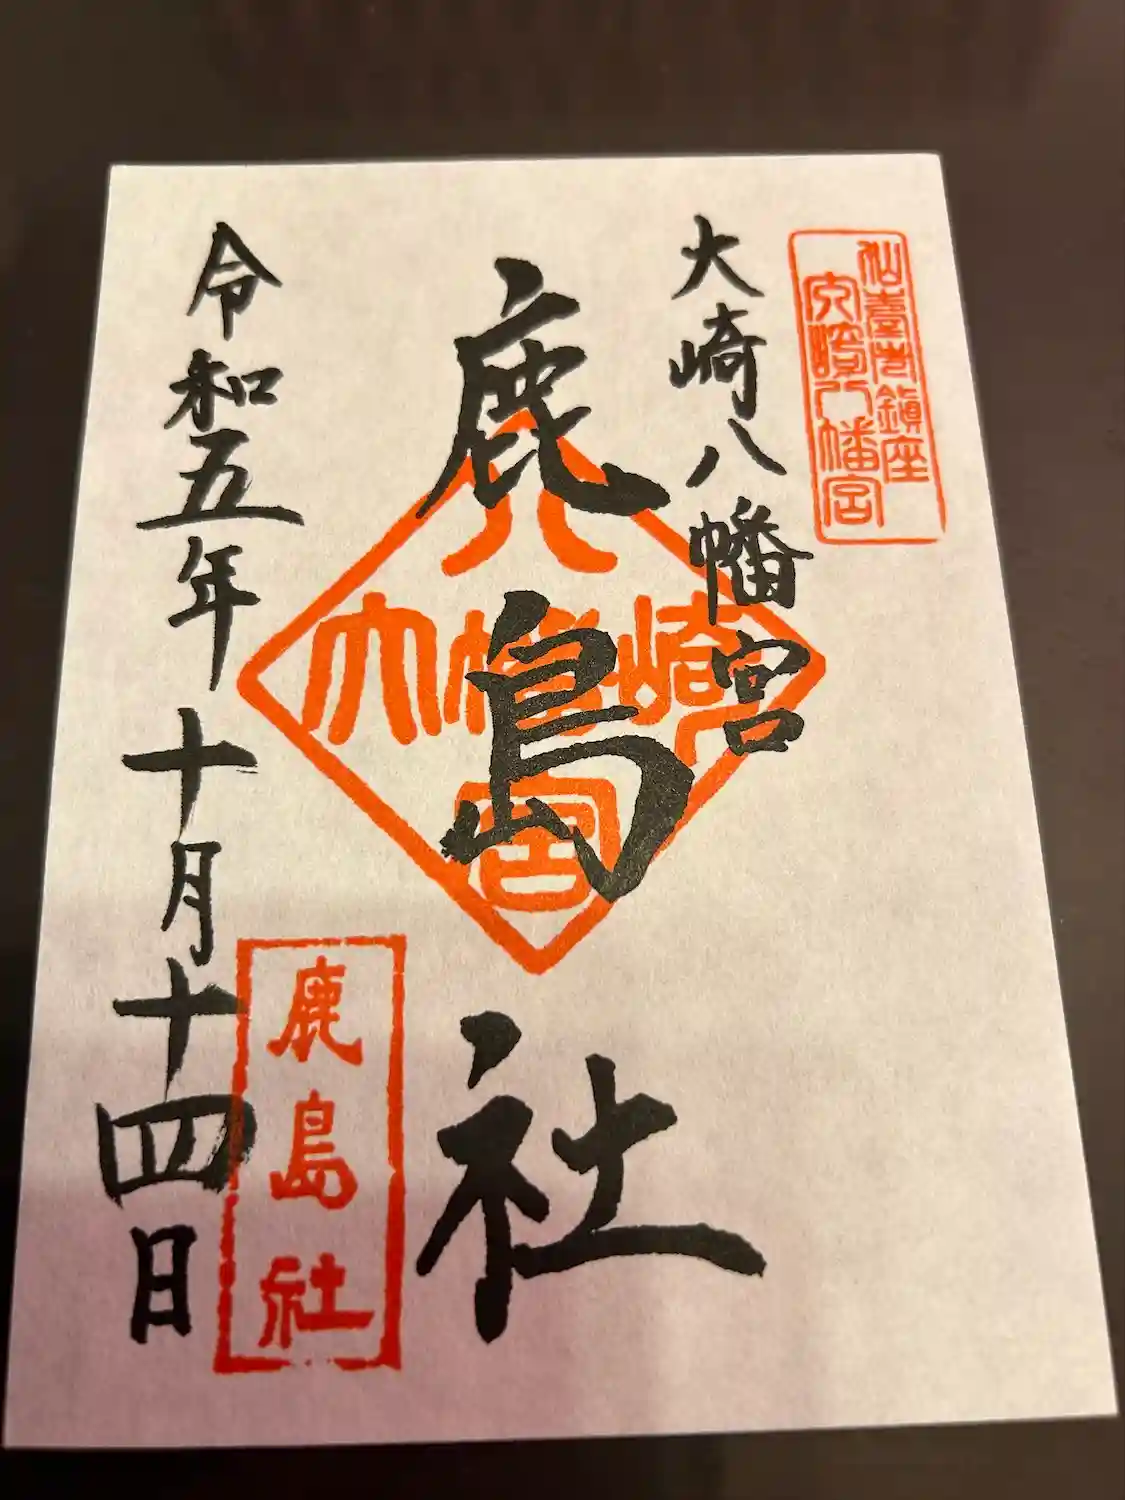 仙臺总鎮座
大崎八幡宮
大崎八幡宮
鹿島社
八
大幡崎
宮
令和五年十月十四日
鹿島社